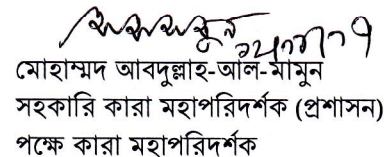 মোহাম্মদ আবদুল্লাহ-আল-মামুন
সহকারি কারা মহাপরিদর্শক (প্রশাসন)
পক্ষে কারা মহাপরিদর্শক